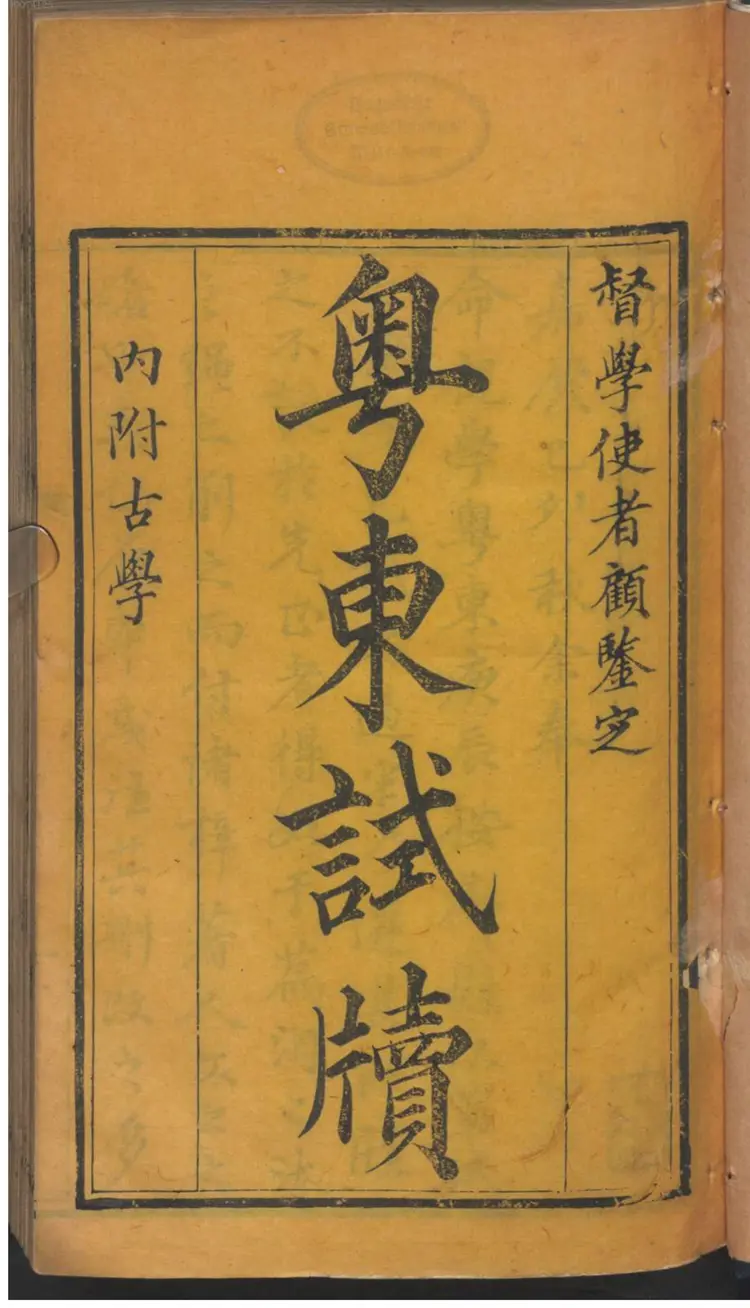 督學使者顧鑒定
粵東試牘
內附古學